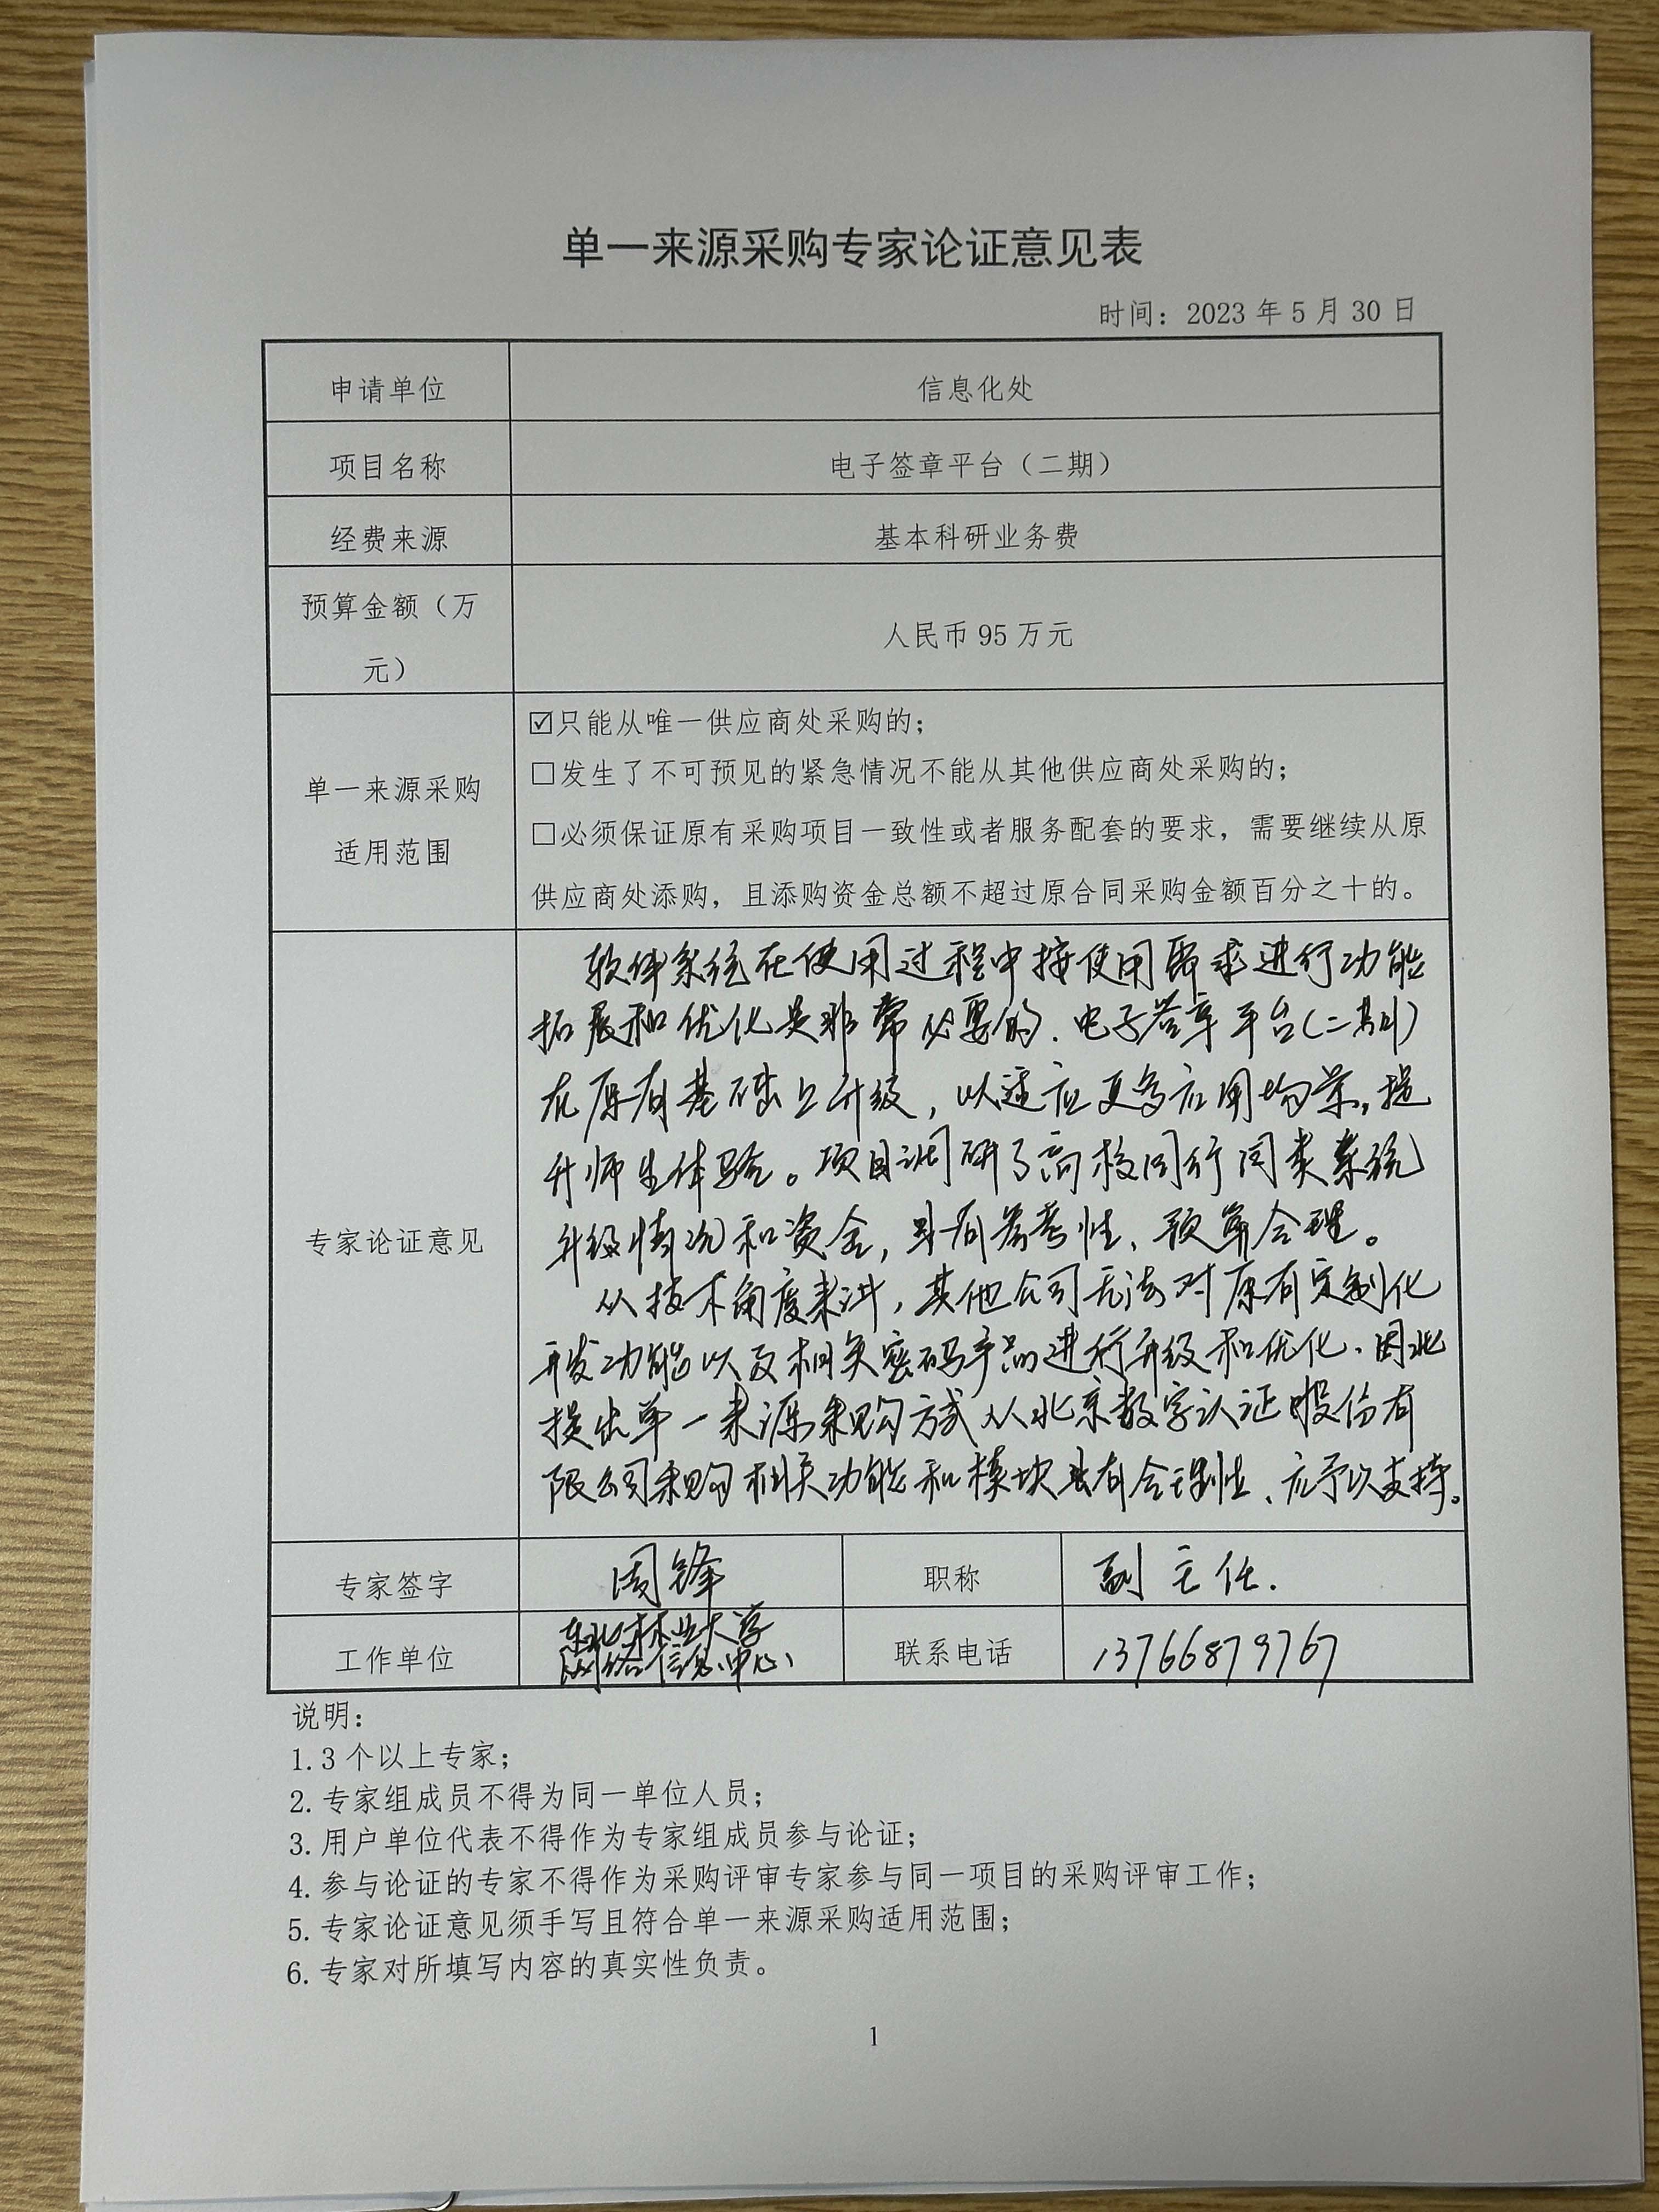 单一来源采购专家论证意见表
时间：2023 年 5 月 30 日
申请单位
信息化处
项目名称
电子签章平台（二期）
经费来源
基本科研业务费
预算金额（万
元）
人民币 95 万元
单一来源采购
适用范围
☑只能从唯一供应商处采购的；
□发生了不可预见的紧急情况不能从其他供应商处采购的；
□必须保证原有采购项目一致性或者服务配套的要求，需要继续从原
供应商处添购，且添购资金总额不超过原合同采购金额百分之十的。
专家论证意见
软件系统在使用过程中按使用需求进行功能
拓展和优化是非常必要的．电子签章平台（二期）
在原有基础上升级，以适应更多应用场景，提
升师生体验。项目调研了高校同行同类系统
升级情况和资金，具有参考性、预算合理。
从技术角度来讲，其他公司无法对原有定制化
开发功能以及相关密码产品进行升级和优化、因此
提出单一来源采购方式从北京数字认证股份有
限公司采购相关功能和模块具有合理性、应予以支持。
专家签字
周锋
职称
副主任.
工作单位
东北林业大学
网络信息中心
联系电话
13766879767
说明：
1. 3 个以上专家；
2. 专家组成员不得为同一单位人员；
3. 用户单位代表不得作为专家组成员参与论证；
4. 参与论证的专家不得作为采购评审专家参与同一项目的采购评审工作；
5. 专家论证意见须手写且符合单一来源采购适用范围；
6. 专家对所填写内容的真实性负责。
1